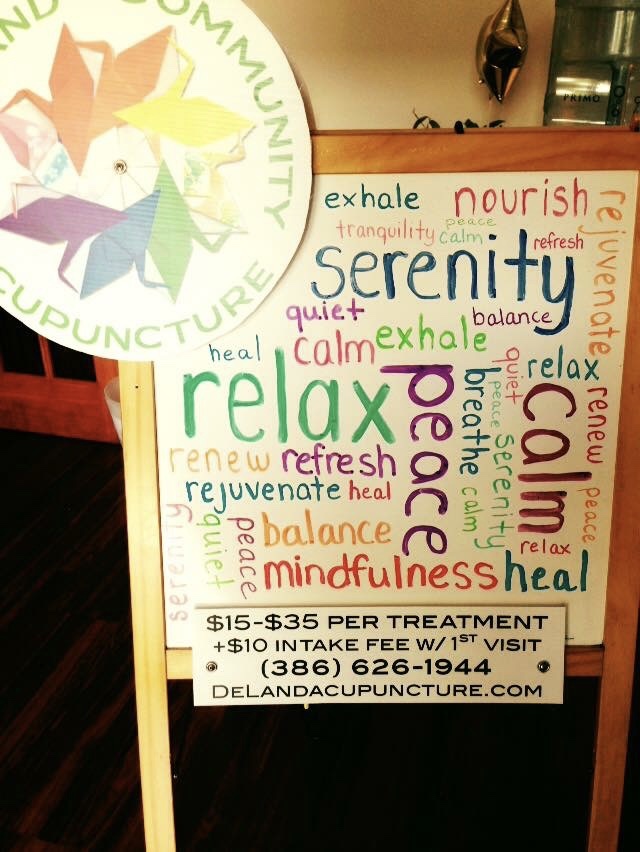 AND COMMUNITY
ACUPUNCTURE
PRIMO
exhale
nourish
rejuvenate
tranquility
peace
calm
refresh
serenity
quiet
balance
heal
calm
exhale
quiet
relax
relax
peace
breathe
peace
calm
renew
renew
refresh
serenity
rejuvenate
heal
calm
peace
serenity
quiet
peace
balance
relax
mindfulness
heal
$15-$35 PER TREATMENT
+$10 INTAKE FEE W/ 1ST VISIT
(386) 626-1944
DELANDACUPUNCTURE.COM